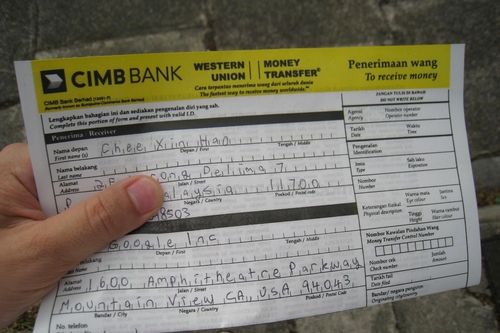 CIMB BANK
WESTERN UNION | MONEY TRANSFER
Penerimaan wang
To receive money
Cara terpantas menerima wang dari seluruh dunia
The fastest way to receive money worldwide
CIMB Bank Berhad
Lengkapkan bahagian ini dan sediakan pengenalan diri yang sah.
Complete this portion of form and present with valid I.D.
JANGAN TULIS DI BAWAH
DO NOT WRITE BELOW
Penerima Receiver
Agensi Nombor operator
Agency Operator number
Nama depan Chee Xin Han
First name(s) Depan / First Tengah / Middle
Tarikh Waktu
Date Time
Nama belakang
Pengenalan
Identification
Alamat Delima 7
Address Jalan / Street
Jenis Sah laku
Type Expiration
Malaysia 11700
Negara / Country Poskod / Postal code
Nombor
Number
8503
Keterangan fizikal Warna mata Jantina
Physical description Eye colour Sex
Tinggi Warna rambut
Height Hair colour
Google Inc
Depan / First Tengah / Middle
Nombor Kawalan Pindahan Wang
Money Transfer Control Number
Alamat 1600 Amphitheatre Parkway
Address Jalan / Street
Nombor cek Jumlah
Check number Amount
Mountain View CA, USA 94043
Bandar / City Negara / Country Poskod / Postal Code
Tarikh fail
Date filed
No. telefon
Bandar/negara pengutus
Originating city/country